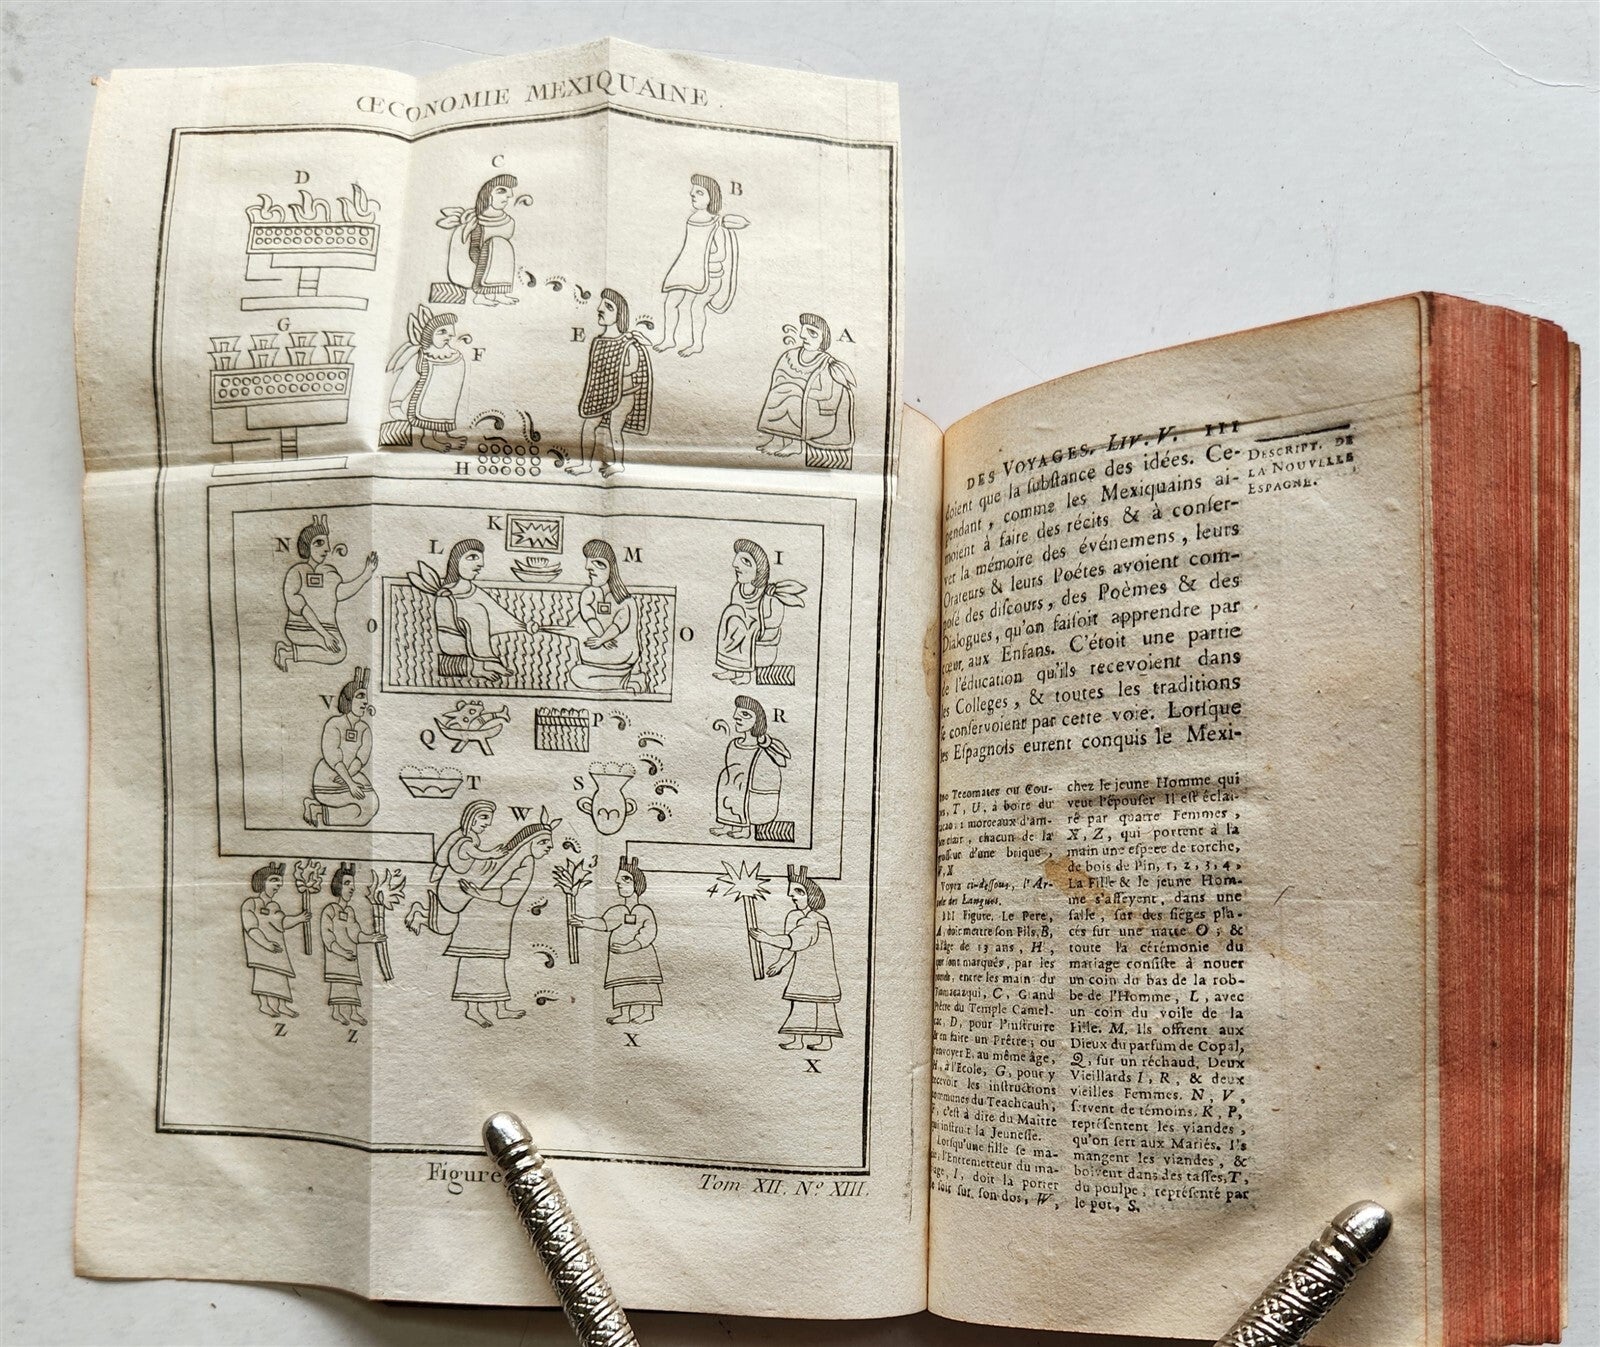 ŒCONOMIE MEXIQUAINE.
D
C
B
G
E
A
F
H
N
L
K
M
I
O
O
V
Q
P
R
T
S
W
2
3
4
Z
Z
X
X
Figure
Tom XII. Nº XIII.
DES VOYAGES. LIV. V. III
DESCRIPT. DE
LA NOUVELLE
ESPAGNE.
doient que la ſubſtance des idées. Ce-
pendant, comme les Mexiquains ai-
moient à faire des récits & à conſer-
ver la mémoire des événemens, leurs
Orateurs & leurs Poétes avoient com-
poſé des diſcours, des Poèmes & des
Dialogues, qu'on faiſoit apprendre par
cœur aux Enfans. C'étoit une partie
de l'éducation qu'ils recevoient dans
les Colleges, & toutes les traditions
ſe conſervoient par cette voie. Lorſque
les Eſpagnols eurent conquis le Mexi-
Tecomates ou Cou-
T, U, à boire du
cacao; morceaux d'am-
clair, chacun de la
groſſeur d'une brique,
V, X
Voyez ci-deſſous, l'Ar-
ticle des Langues.
III Figure. Le Pere,
A, doit mettre ſon Fils, B,
à l'âge de 15 ans, H,
qui ſont marqués, par les
ronds, entre les main du
C, Grand
Prêtre du Temple Calmel-
cac, D, pour l'inſtruire
& en faire un Prêtre; ou
envoyer E, au même âge,
H, à l'Ecole, G, pour y
recevoir les inſtructions
communes du Teachcauh,
F, c'eſt à dire du Maitre
qui inſtruit la Jeuneſſe.
Lorſqu'une fille ſe ma-
rie, l'Entremetteur du ma-
riage, I, doit la porter
le ſoir ſur ſon dos, W,
chez le jeune Homme qui
veut l'épouſer Il eſt éclai-
ré par quatre Femmes,
X, Z, qui portent à la
main une eſpece de torche,
de bois de Pin, 1, 2, 3, 4,
La Fille & le jeune Hom-
me s'aſſeyent, dans une
ſalle, ſur des ſiéges pla-
cés ſur une natte O; &
toute la cérémonie du
mariage conſiſte à nouer
un coin du bas de la rob-
be de l'Homme, L, avec
un coin du voile de la
Fille. M. Ils offrent aux
Dieux du parfum de Copal,
Q, ſur un réchaud. Deux
Vieillards I, R, & deux
vieilles Femmes. N, V,
ſervent de témoins. K, P,
repréſentent les viandes,
qu'on ſert aux Mariés. I's
mangent les viandes, &
boivent dans des taſſes, T,
du poulpe, repréſenté par
le pot, S.